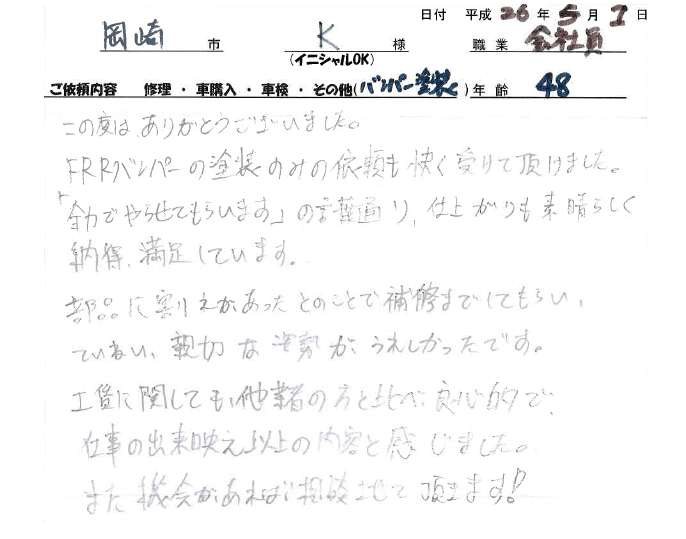 日付 平成 26 年 5 月 1 日
岡崎 市 K 様 職業 会社員
(イニシャルOK)
ご依頼内容 修理・車購入・車検・その他(バンパー塗装)年齢 48
この度は、ありがとうございました。
FRRバンパーの塗装のみの依頼も快く受けて頂けました。
「全力でやらせてもらいます」の言葉通り、仕上がりも素晴らしく
納得、満足しています。
部品に割れがあったとのことで補修までしてもらい、
ていねい、親切な姿勢が、うれしかったです。
工賃に関しても、他業者の方と比べ良心的で、
仕事の出来映え以上の内容と感じました。
また機会があれば相談させて頂きます!